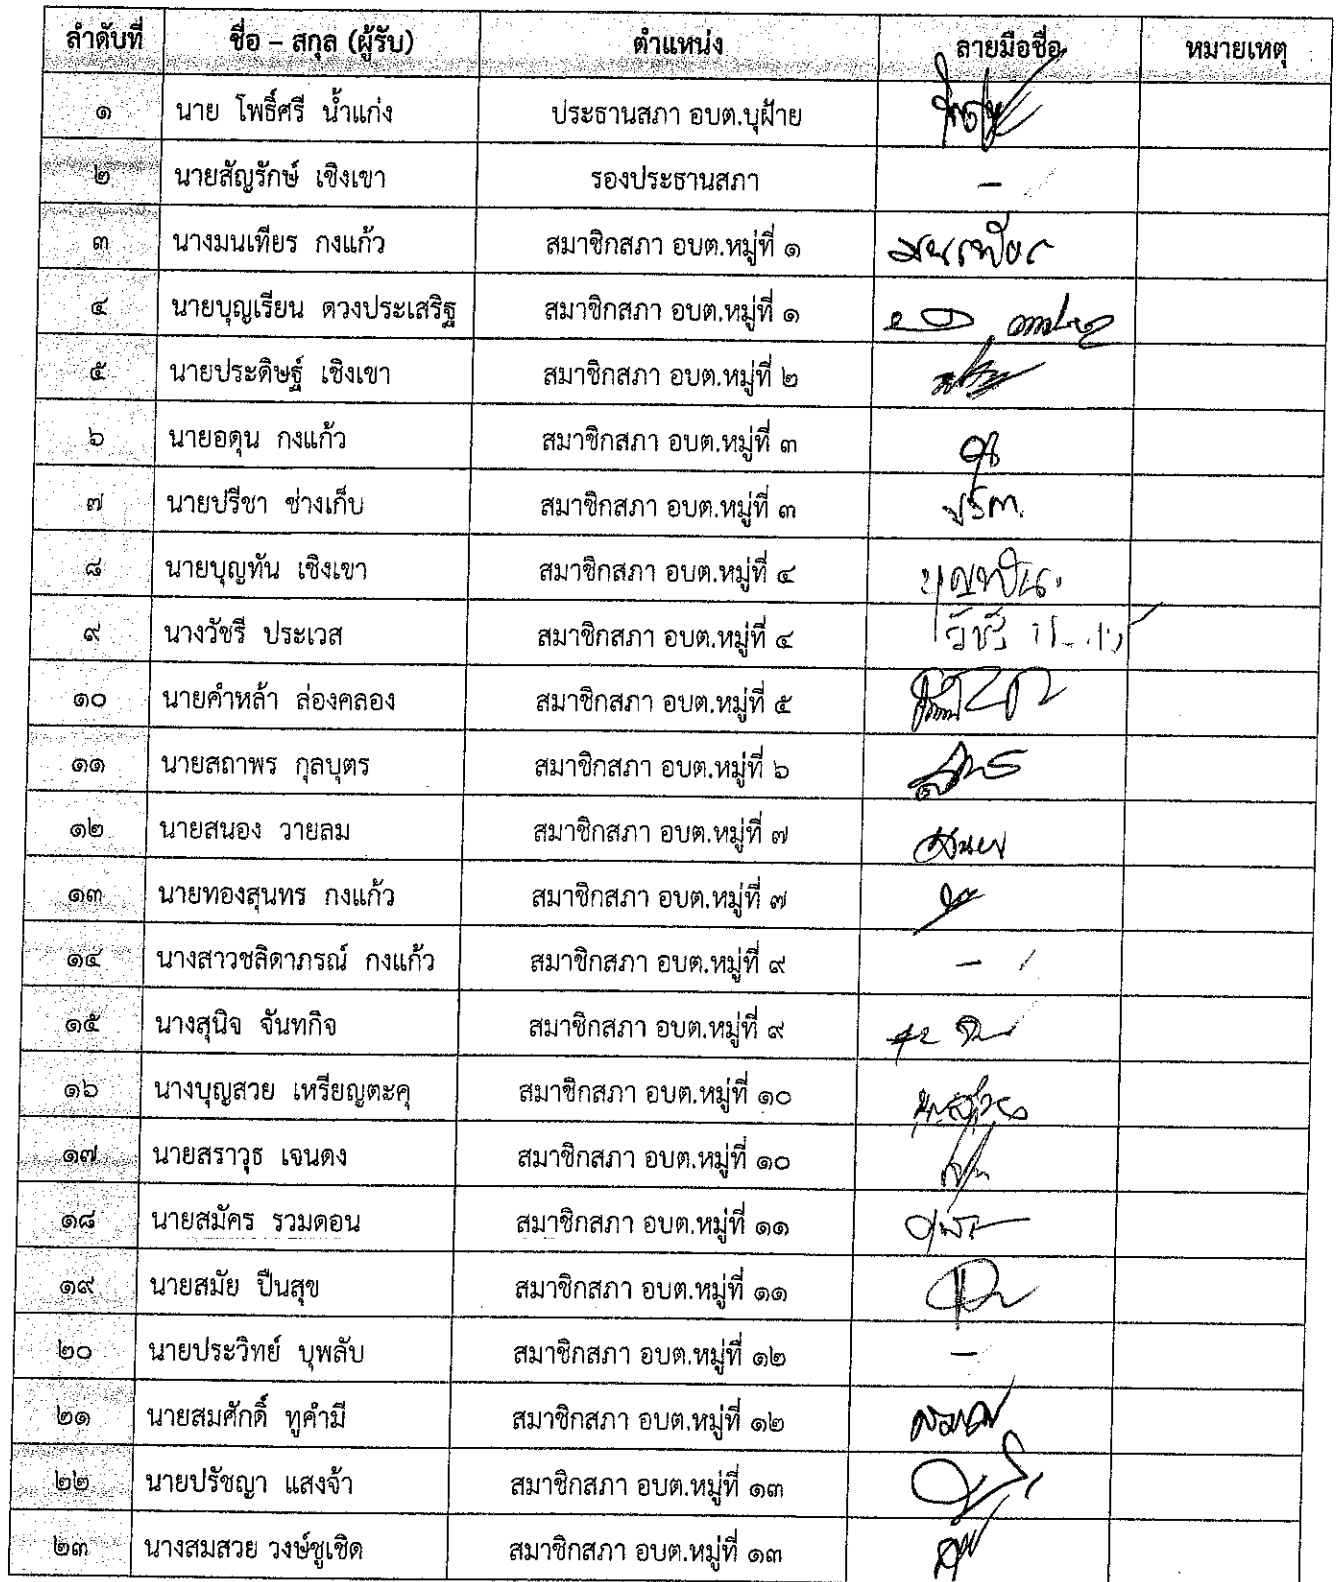 ลำดับที่ ชื่อ – สกุล (ผู้รับ) ตำแหน่ง ลายมือชื่อ หมายเหตุ
๑ นาย โพธิ์ศรี น้ำแก่ง ประธานสภา อบต.บุฝ้าย
๒ นายสัญรักษ์ เชิงเขา รองประธานสภา -
๓ นางมนเทียร กงแก้ว สมาชิกสภา อบต.หมู่ที่ ๑ มนเทียร
๔ นายบุญเรียน ดวงประเสริฐ สมาชิกสภา อบต.หมู่ที่ ๑
๕ นายประดิษฐ์ เชิงเขา สมาชิกสภา อบต.หมู่ที่ ๒
๖ นายอดุน กงแก้ว สมาชิกสภา อบต.หมู่ที่ ๓
๗ นายปรีชา ช่างเก็บ สมาชิกสภา อบต.หมู่ที่ ๓
๘ นายบุญทัน เชิงเขา สมาชิกสภา อบต.หมู่ที่ ๔ บุญทัน
๙ นางวัชรี ประเวส สมาชิกสภา อบต.หมู่ที่ ๔ วัชรี
๑๐ นายคำหล้า ล่องคลอง สมาชิกสภา อบต.หมู่ที่ ๕
๑๑ นายสถาพร กุลบุตร สมาชิกสภา อบต.หมู่ที่ ๖
๑๒ นายสนอง วายลม สมาชิกสภา อบต.หมู่ที่ ๗
๑๓ นายทองสุนทร กงแก้ว สมาชิกสภา อบต.หมู่ที่ ๗
๑๔ นางสาวชลิดาภรณ์ กงแก้ว สมาชิกสภา อบต.หมู่ที่ ๙ -
๑๕ นางสุนิจ จันทกิจ สมาชิกสภา อบต.หมู่ที่ ๙
๑๖ นางบุญสวย เหรียญตะคุ สมาชิกสภา อบต.หมู่ที่ ๑๐
๑๗ นายสราวุธ เจนดง สมาชิกสภา อบต.หมู่ที่ ๑๐
๑๘ นายสมัคร รวมดอน สมาชิกสภา อบต.หมู่ที่ ๑๑
๑๙ นายสมัย ปืนสุข สมาชิกสภา อบต.หมู่ที่ ๑๑
๒๐ นายประวิทย์ บุพลับ สมาชิกสภา อบต.หมู่ที่ ๑๒ -
๒๑ นายสมศักดิ์ ทูคำมี สมาชิกสภา อบต.หมู่ที่ ๑๒
๒๒ นายปรัชญา แสงจ้า สมาชิกสภา อบต.หมู่ที่ ๑๓
๒๓ นางสมสวย วงษ์ชูเชิด สมาชิกสภา อบต.หมู่ที่ ๑๓